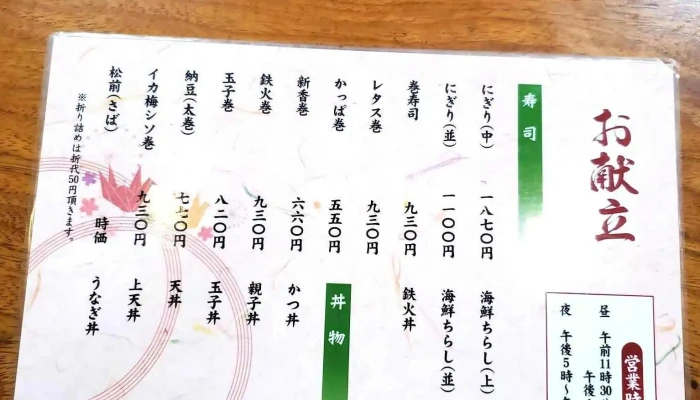 お献立
営業時
昼 午前11時30
午後
夜 午後5時〜
寿司
にぎり(中) 一八七〇円
にぎり(並) 一一〇〇円
巻寿司 九三〇円
レタス巻 九三〇円
かっぱ巻 五五〇円
新香巻 六六〇円
鉄火巻 九三〇円
玉子巻 八二〇円
納豆(太巻) 七七〇円
イカ梅シソ巻 九三〇円
松前(さば) 時価
※折り詰めは折代50円頂きます。
海鮮ちらし(上)
海鮮ちらし(並)
鉄火丼
丼物
かつ丼
親子丼
玉子丼
天丼
上天丼
うなぎ丼